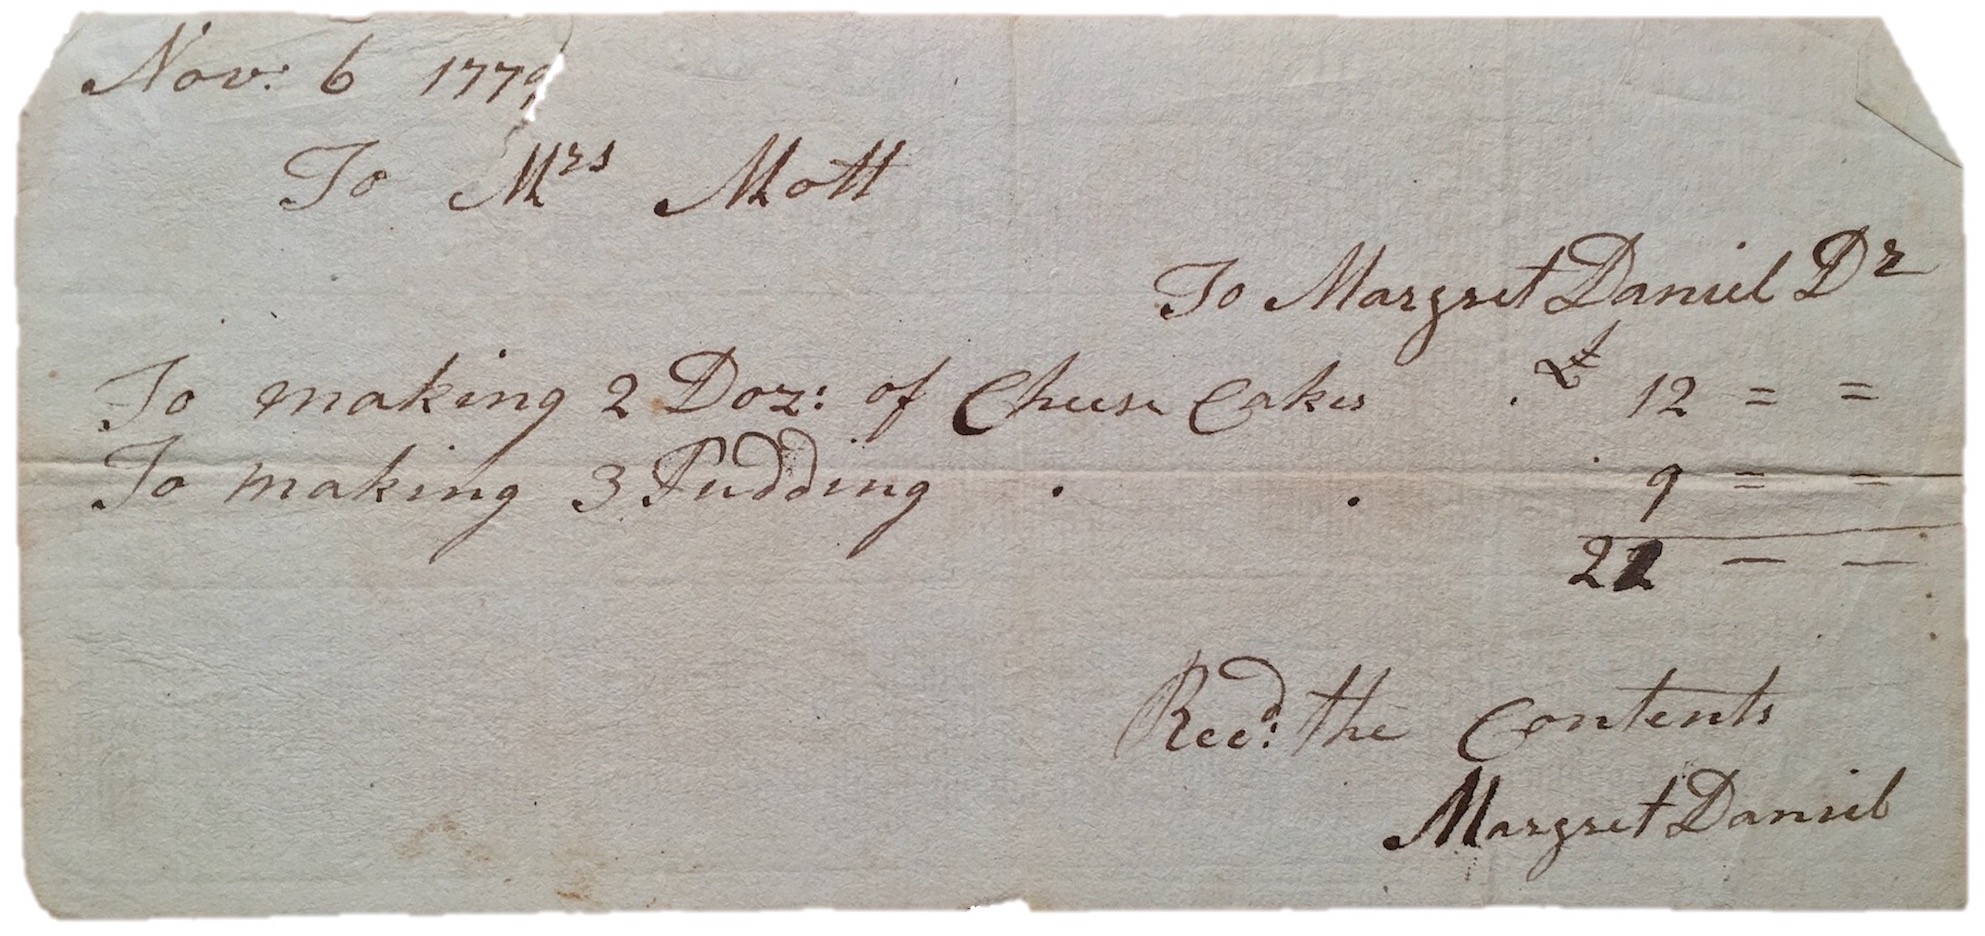 Nov: 6 1779
To Mrs Mott
To Margret Daniel Dr
To making 2 Doz: of Cheese Cakes . £ 12 = =
To making 3 Pudding . . 9 = =
22 — —
Recd: the Contents
Margret Daniel